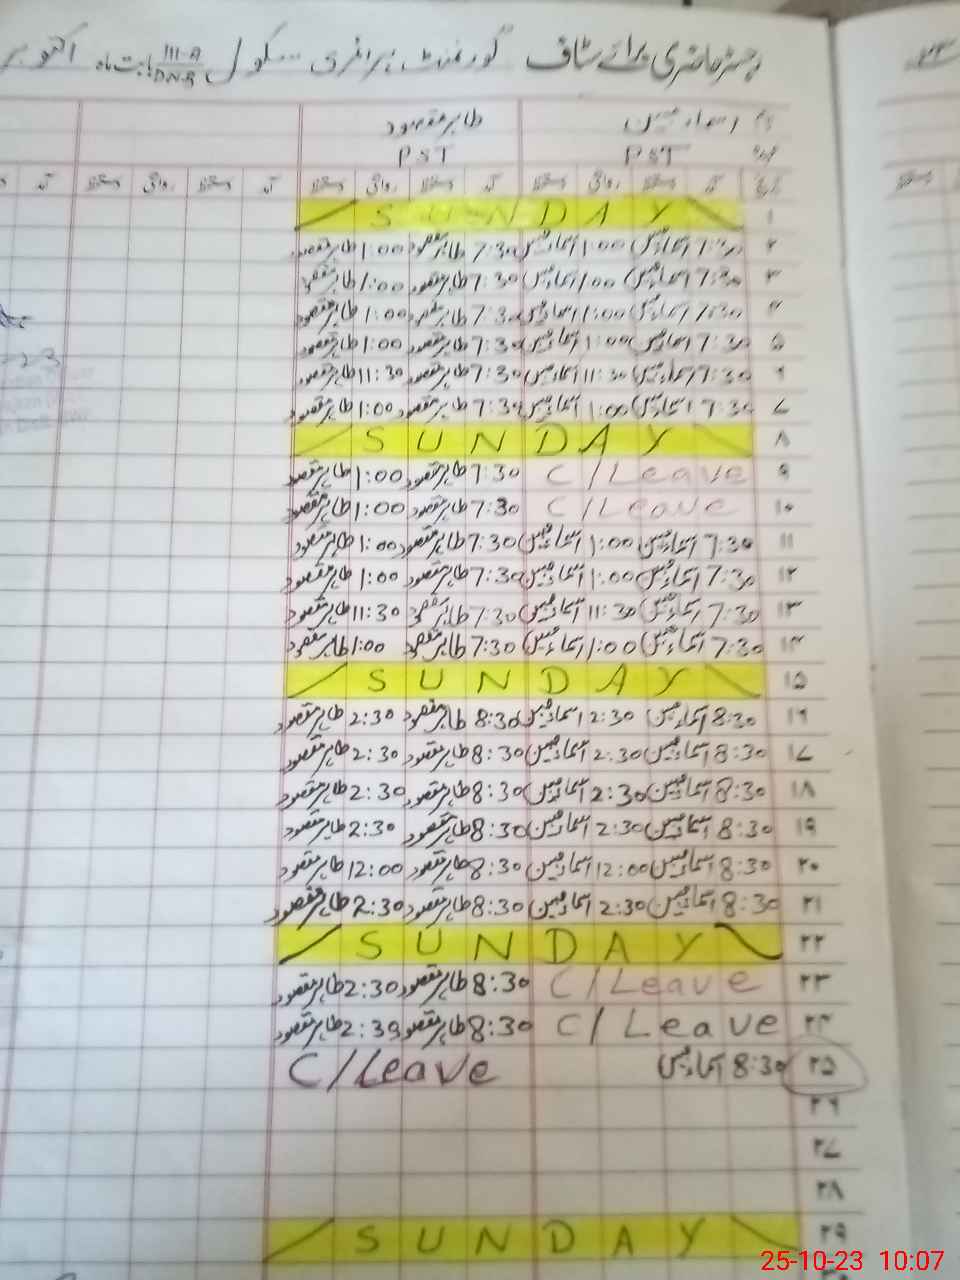 رجسٹر حاضری برائے سٹاف گورنمنٹ پرائمری سکول III-A / DNB بابت ماہ اکتوبر
نام اسماء مبین طاہر مقصود
عہدہ PST PST
تاریخ آمد دستخط روانگی دستخط آمد دستخط روانگی دستخط آمد دستخط روانگی دستخط آمد
۱ SUNDAY
۲ 7:30 اسماء مبین 1:00 اسماء مبین 7:30 طاہر مقصود 1:00 طاہر مقصود
۳ 7:30 اسماء مبین 1:00 اسماء مبین 7:30 طاہر مقصود 1:00 طاہر مقصود
۴ 7:30 اسماء مبین 1:00 اسماء مبین 7:30 طاہر مقصود 1:00 طاہر مقصود
۵ 7:30 اسماء مبین 1:00 اسماء مبین 7:30 طاہر مقصود 1:00 طاہر مقصود
۶ 7:30 اسماء مبین 11:30 اسماء مبین 7:30 طاہر مقصود 11:30 طاہر مقصود
۷ 7:30 اسماء مبین 1:00 اسماء مبین 7:30 طاہر مقصود 1:00 طاہر مقصود
۸ SUNDAY
۹ C/Leave 7:30 طاہر مقصود 1:00 طاہر مقصود
۱۰ C/Leave 7:30 طاہر مقصود 1:00 طاہر مقصود
۱۱ 7:30 اسماء مبین 1:00 اسماء مبین 7:30 طاہر مقصود 1:00 طاہر مقصود
۱۲ 7:30 اسماء مبین 1:00 اسماء مبین 7:30 طاہر مقصود 1:00 طاہر مقصود
۱۳ 7:30 اسماء مبین 11:30 اسماء مبین 7:30 طاہر مقصود 11:30 طاہر مقصود
۱۴ 7:30 اسماء مبین 1:00 اسماء مبین 7:30 طاہر مقصود 1:00 طاہر مقصود
۱۵ SUNDAY
۱۶ 8:30 اسماء مبین 2:30 اسماء مبین 8:30 طاہر مقصود 2:30 طاہر مقصود
۱۷ 8:30 اسماء مبین 2:30 اسماء مبین 8:30 طاہر مقصود 2:30 طاہر مقصود
۱۸ 8:30 اسماء مبین 2:30 اسماء مبین 8:30 طاہر مقصود 2:30 طاہر مقصود
۱۹ 8:30 اسماء مبین 2:30 اسماء مبین 8:30 طاہر مقصود 2:30 طاہر مقصود
۲۰ 8:30 اسماء مبین 12:00 اسماء مبین 8:30 طاہر مقصود 12:00 طاہر مقصود
۲۱ 8:30 اسماء مبین 2:30 اسماء مبین 8:30 طاہر مقصود 2:30 طاہر مقصود
۲۲ SUNDAY
۲۳ C/Leave 8:30 طاہر مقصود 2:30 طاہر مقصود
۲۴ C/Leave 8:30 طاہر مقصود 2:30 طاہر مقصود
۲۵ 8:30 اسماء مبین C/Leave
۲۶
۲۷
۲۸
۲۹ SUNDAY
25-10-23 10:07